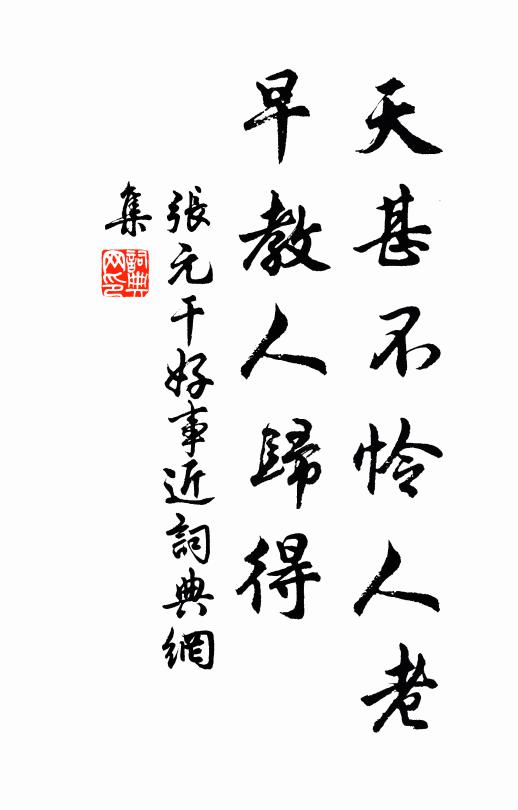 天甚不怜人老
早教人歸得
張元干好事近詞典網
集
詞典
网印